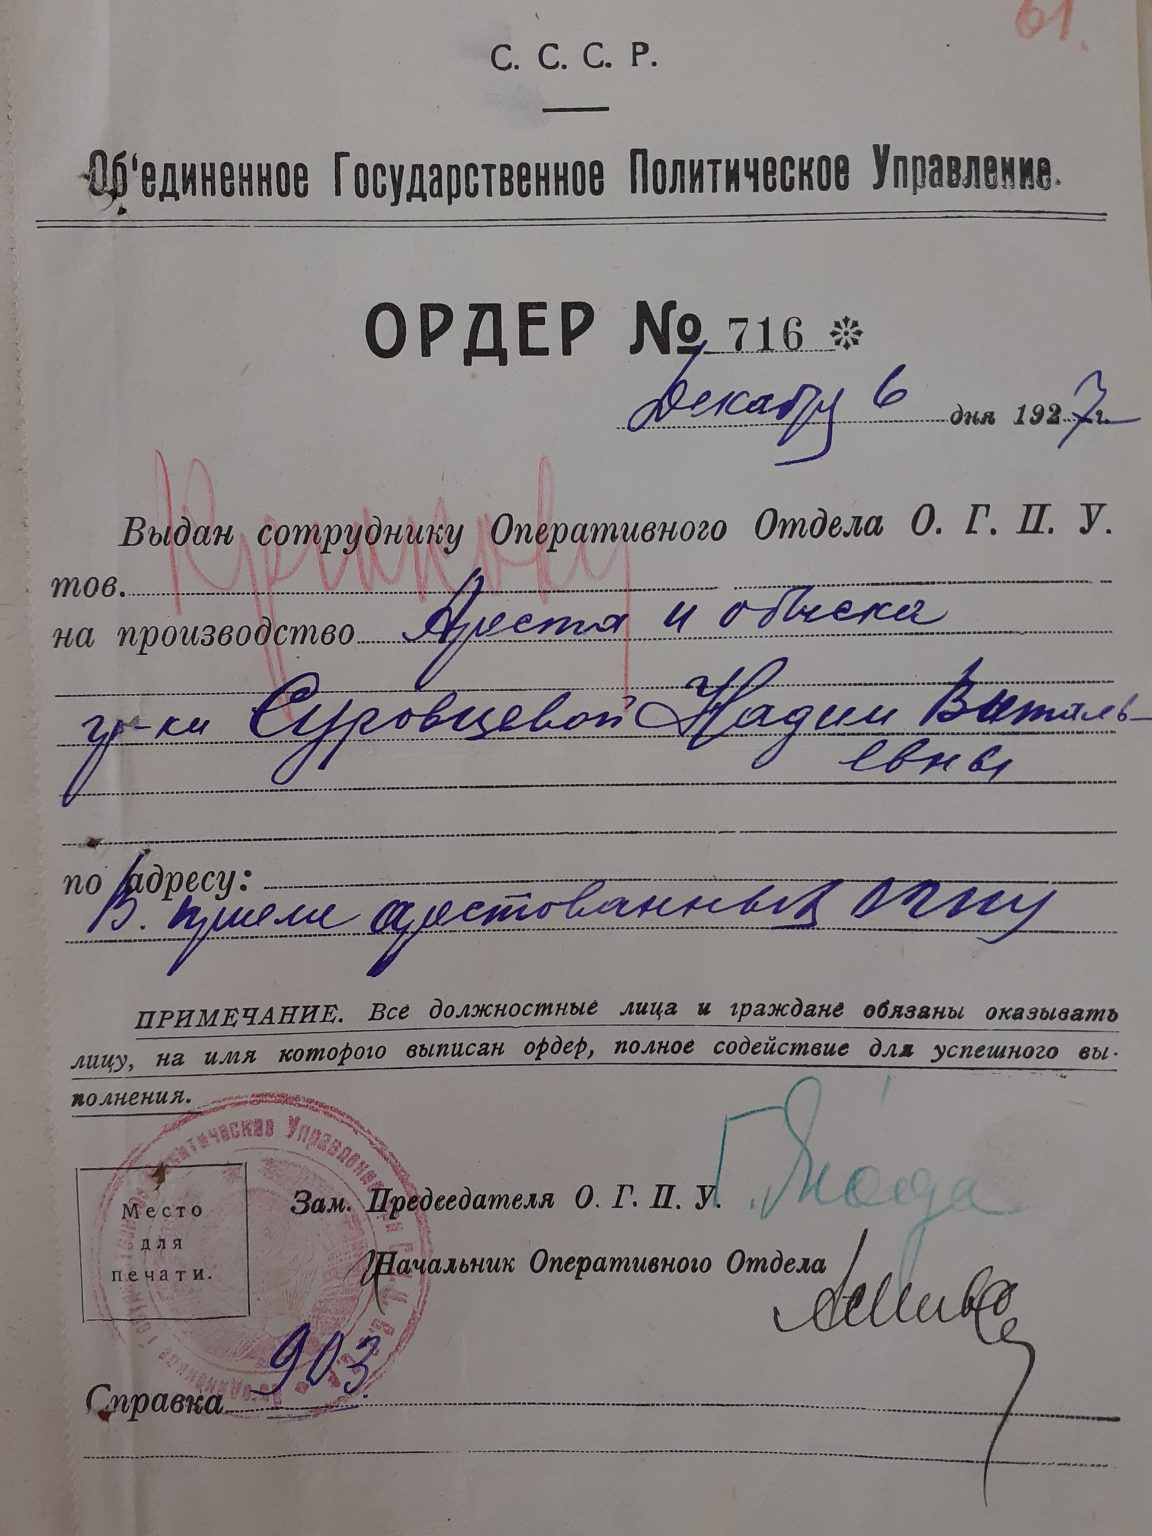 61.
С. С. С. Р.
Об'единенное Государственное Политическое Управление.
ОРДЕР № 716
Декабря 6 дня 1927 г.
Выдан сотруднику Оперативного Отдела О. Г. П. У.
тов.
на производство Ареста и обыска
гр-ки Суровцевой Надии Виталь-
евны
по адресу:
В. приеме арестованных ОГПУ
ПРИМЕЧАНИЕ. Все должностные лица и граждане обязаны оказывать
лицу, на имя которого выписан ордер, полное содействие для успешного вы-
полнения.
Место
для
печати.
Зам. Председателя О. Г. П. У. Г. Ягода
Начальник Оперативного Отдела
Справка 903